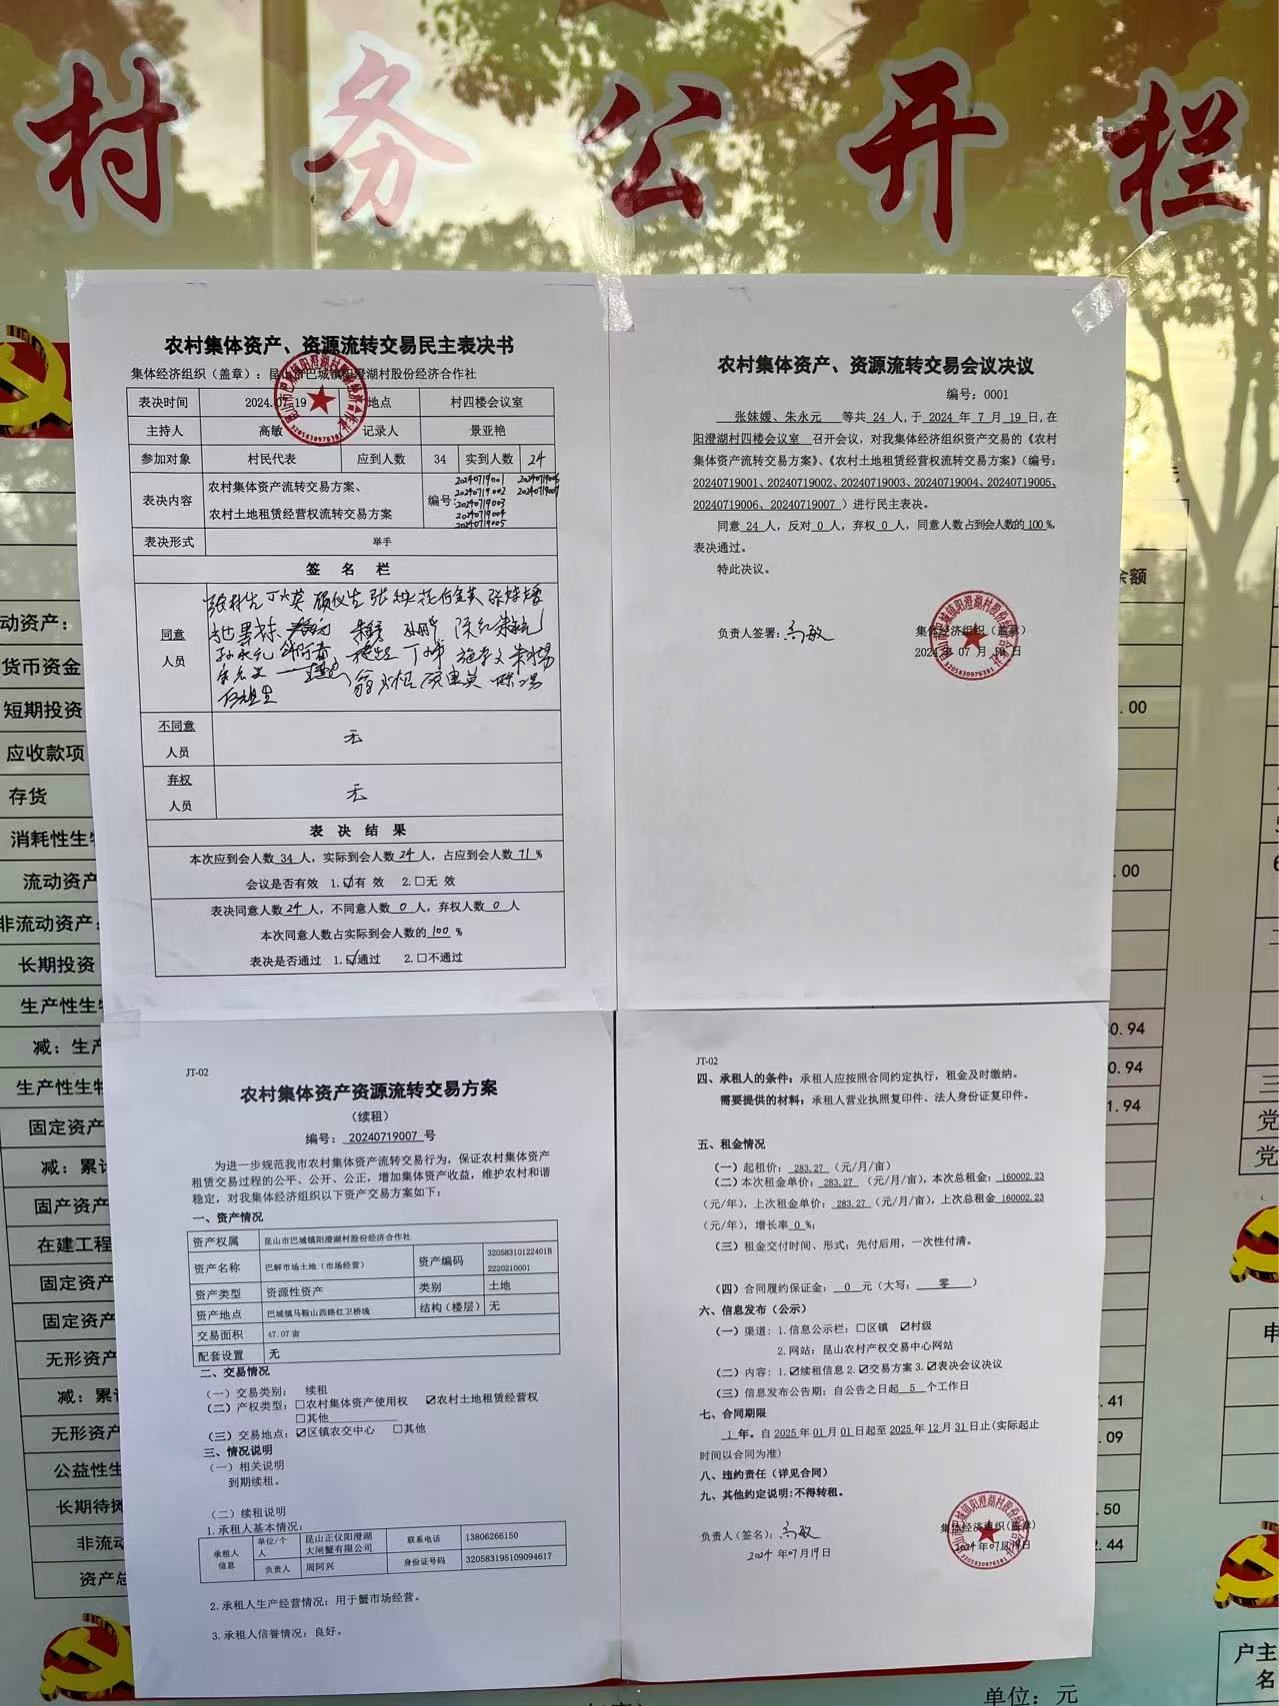 村务公开栏
农村集体资产、资源流转交易民主表决书
集体经济组织（盖章）：昆山市巴城镇阳澄湖村股份经济合作社
表决时间 2024.07.19 地点 村四楼会议室
主持人 高敏 记录人 景亚艳
参加对象 村民代表 应到人数 34 实到人数 24
表决内容 农村集体资产流转交易方案、
农村土地租赁经营权流转交易方案
编号：20240719001
20240719002
20240719003
20240719004
20240719005
20240719006
20240719007
表决形式 举手
签名栏
同意
人员
不同意
人员
无
弃权
人员
无
表决结果
本次应到会人数 34 人，实际到会人数 24 人，占应到会人数 71 %
会议是否有效 1.☑有 效 2.□无 效
表决同意人数 24 人，不同意人数 0 人，弃权人数 0 人
本次同意人数占实际到会人数的 100 %
表决是否通过 1.☑通过 2.□不通过
农村集体资产、资源流转交易会议决议
编号：0001
张妹媛、朱永元 等共 24 人，于 2024 年 7 月 19 日，在
阳澄湖村四楼会议室 召开会议，对我集体经济组织资产交易的《农村
集体资产流转交易方案》、《农村土地租赁经营权流转交易方案》（编号：
20240719001、20240719002、20240719003、20240719004、20240719005、
20240719006、20240719007 ）进行民主表决。
同意 24 人，反对 0 人，弃权 0 人，同意人数占到会人数的 100 %，
表决通过。
特此决议。
负责人签署：高敏
集体经济组织（盖章）
2024 年 07 月 19 日
JT-02
农村集体资产资源流转交易方案
（续租）
编号： 20240719007 号
为进一步规范我市农村集体资产流转交易行为，保证农村集体资产
租赁交易过程的公平、公开、公正，增加集体资产收益，维护农村和谐
稳定，对我集体经济组织以下资产交易方案如下：
一、资产情况
资产权属 昆山市巴城镇阳澄湖村股份经济合作社
资产名称 巴解市场土地（市场经营） 资产编码 32058310122401B
2220210001
资产类型 资源性资产 类别 土地
资产地点 巴城镇马鞍山西路红卫桥堍 结构（楼层） 无
交易面积 47.07 亩
配套设置 无
二、交易情况
（一）交易类别： 续租
（二）产权类型：□农村集体资产使用权 ☑农村土地租赁经营权
□其他
（三）交易地点：☑区镇农交中心 □其他
三、情况说明
（一）相关说明
到期续租。
（二）续租说明
1.承租人基本情况：
承租人
信息
单位/个
人
昆山正仪阳澄湖
大闸蟹有限公司
联系电话 13806266150
负责人 周阿兴 身份证号码 320583195109094617
2.承租人生产经营情况：用于蟹市场经营。
3.承租人信誉情况：良好。
JT-02
四、承租人的条件：承租人应按照合同约定执行，租金及时缴纳。
需要提供的材料：承租人营业执照复印件、法人身份证复印件。
五、租金情况
（一）起租价： 283.27 （元/月/亩）
（二）本次租金单价： 283.27 （元/月/亩），本次总租金： 160002.23
（元/年），上次租金单价： 283.27 （元/月/亩），上次总租金 160002.23
（元/年），增长率 0 %；
（三）租金交付时间、形式：先付后用，一次性付清。
（四）合同履约保证金： 0 元（大写： 零 ）
六、信息发布（公示）
（一）渠道：1.信息公示栏：□区镇 ☑村级
2.网站：昆山农村产权交易中心网站
（二）内容：1.☑续租信息 2.☑交易方案 3.☑表决会议决议
（三）信息发布公告期：自公告之日起 5 个工作日
七、合同期限
1 年。自 2025 年 01 月 01 日起至 2025 年 12 月 31 日止(实际起止
时间以合同为准)
八、违约责任（详见合同）
九、其他约定说明：不得转租。
负责人（签名）：高敏
2024 年 07 月 19 日
集体经济组织（盖章）
2024 年 07 月 19 日
动资产：
货币资金
短期投资
应收款项
存货
消耗性生
流动资产
非流动资产
长期投资
生产性生
减：生产
生产性生物
固定资产
减：累计
固产资产
在建工程
固定资产
固定资产
无形资产
减：累计
无形资产
公益性生
长期待摊
非流动
资产总
余额
.00
.00
0.94
0.94
1.94
.41
.09
.50
2.44
元
三
党
党
申
户主
名
单位：元